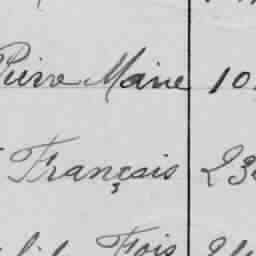 Pierre Marie 10
François 23
Fois